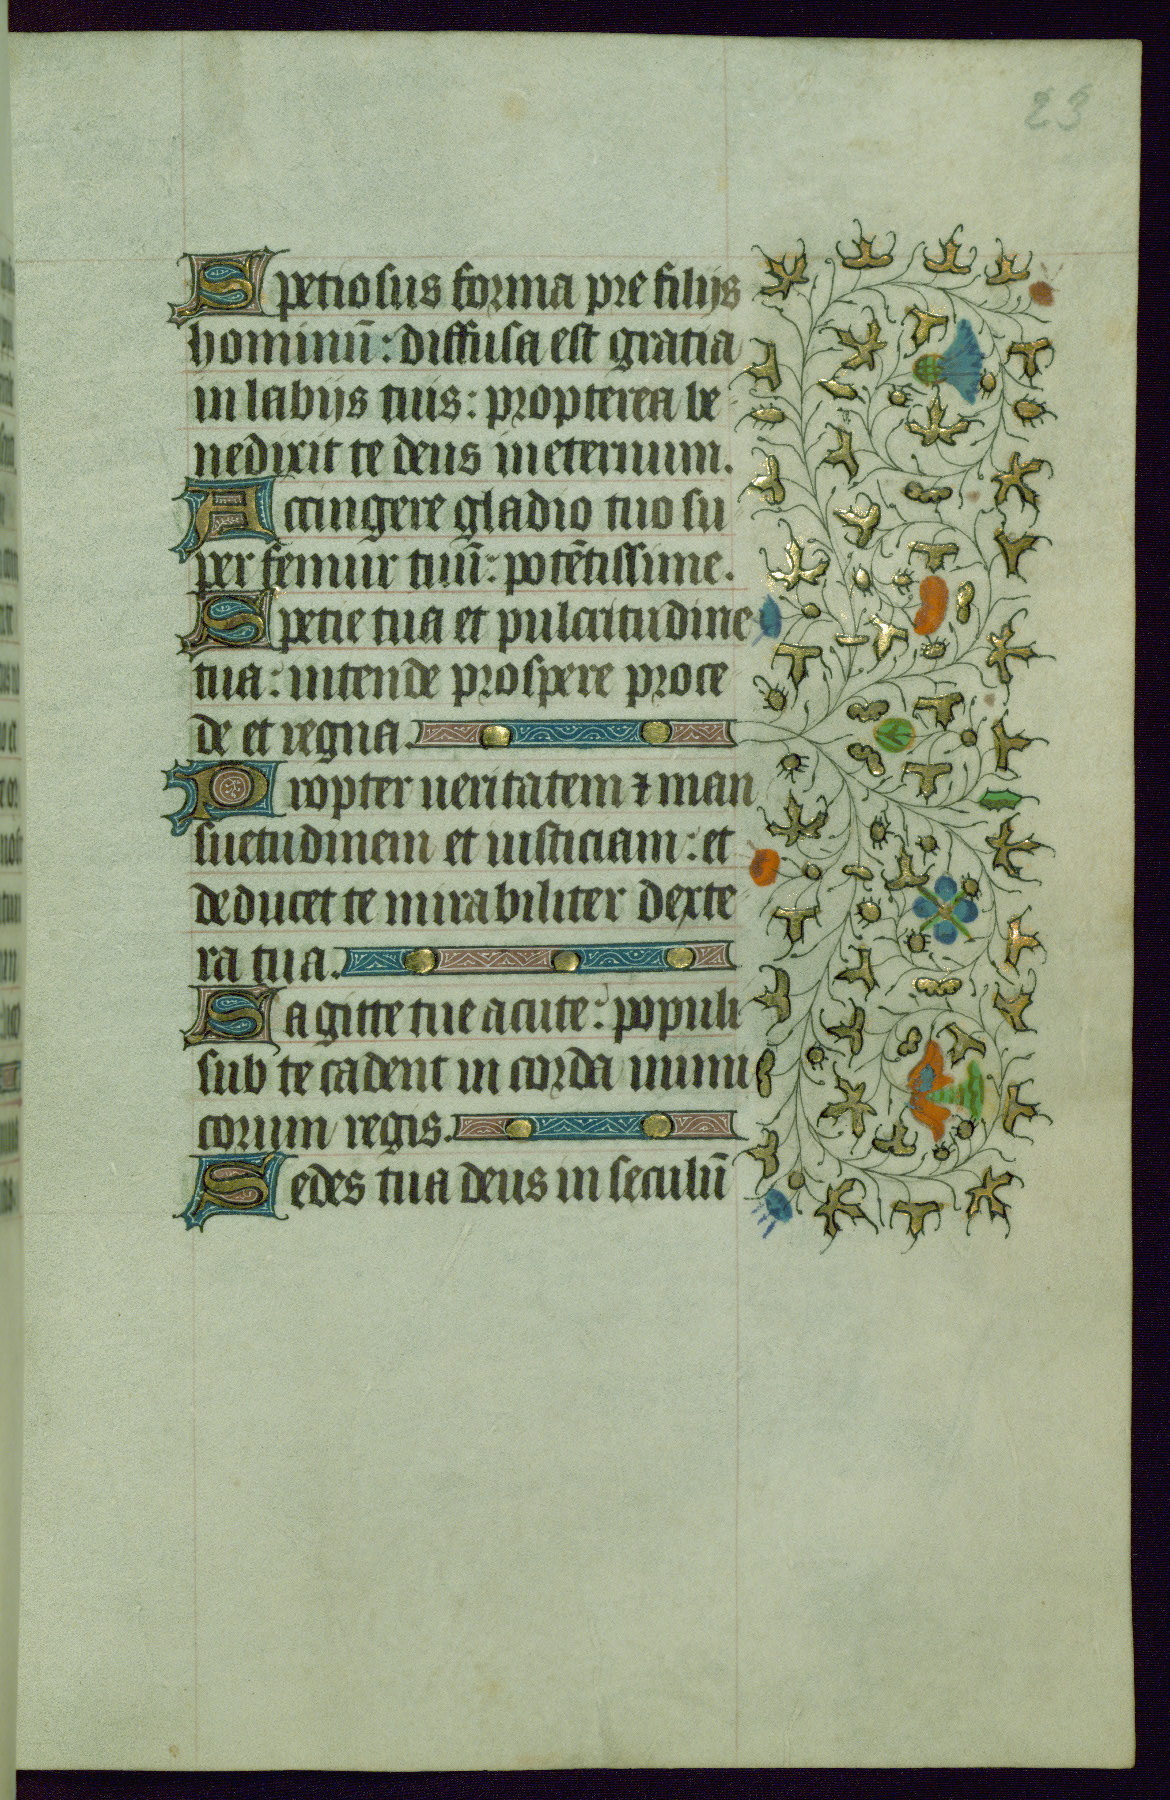 23
Spetiosus forma pre filijs
hominū: diffusa est gratia
in labijs tuis: propterea be
nedixit te deus in eternum.
Accingere gladio tuo su
per femur tuū: potētissime.
Spetie tua et pulcritudine
tua: intende prospere proce
de et regna.
Propter ueritatem ⁊ man
suetudinem et iusticiam: et
deducet te mirabiliter dexte
ra tua.
Sagitte tue acute: populi
sub te cadent in corda inimi
corum regis.
Sedes tua deus in seculū